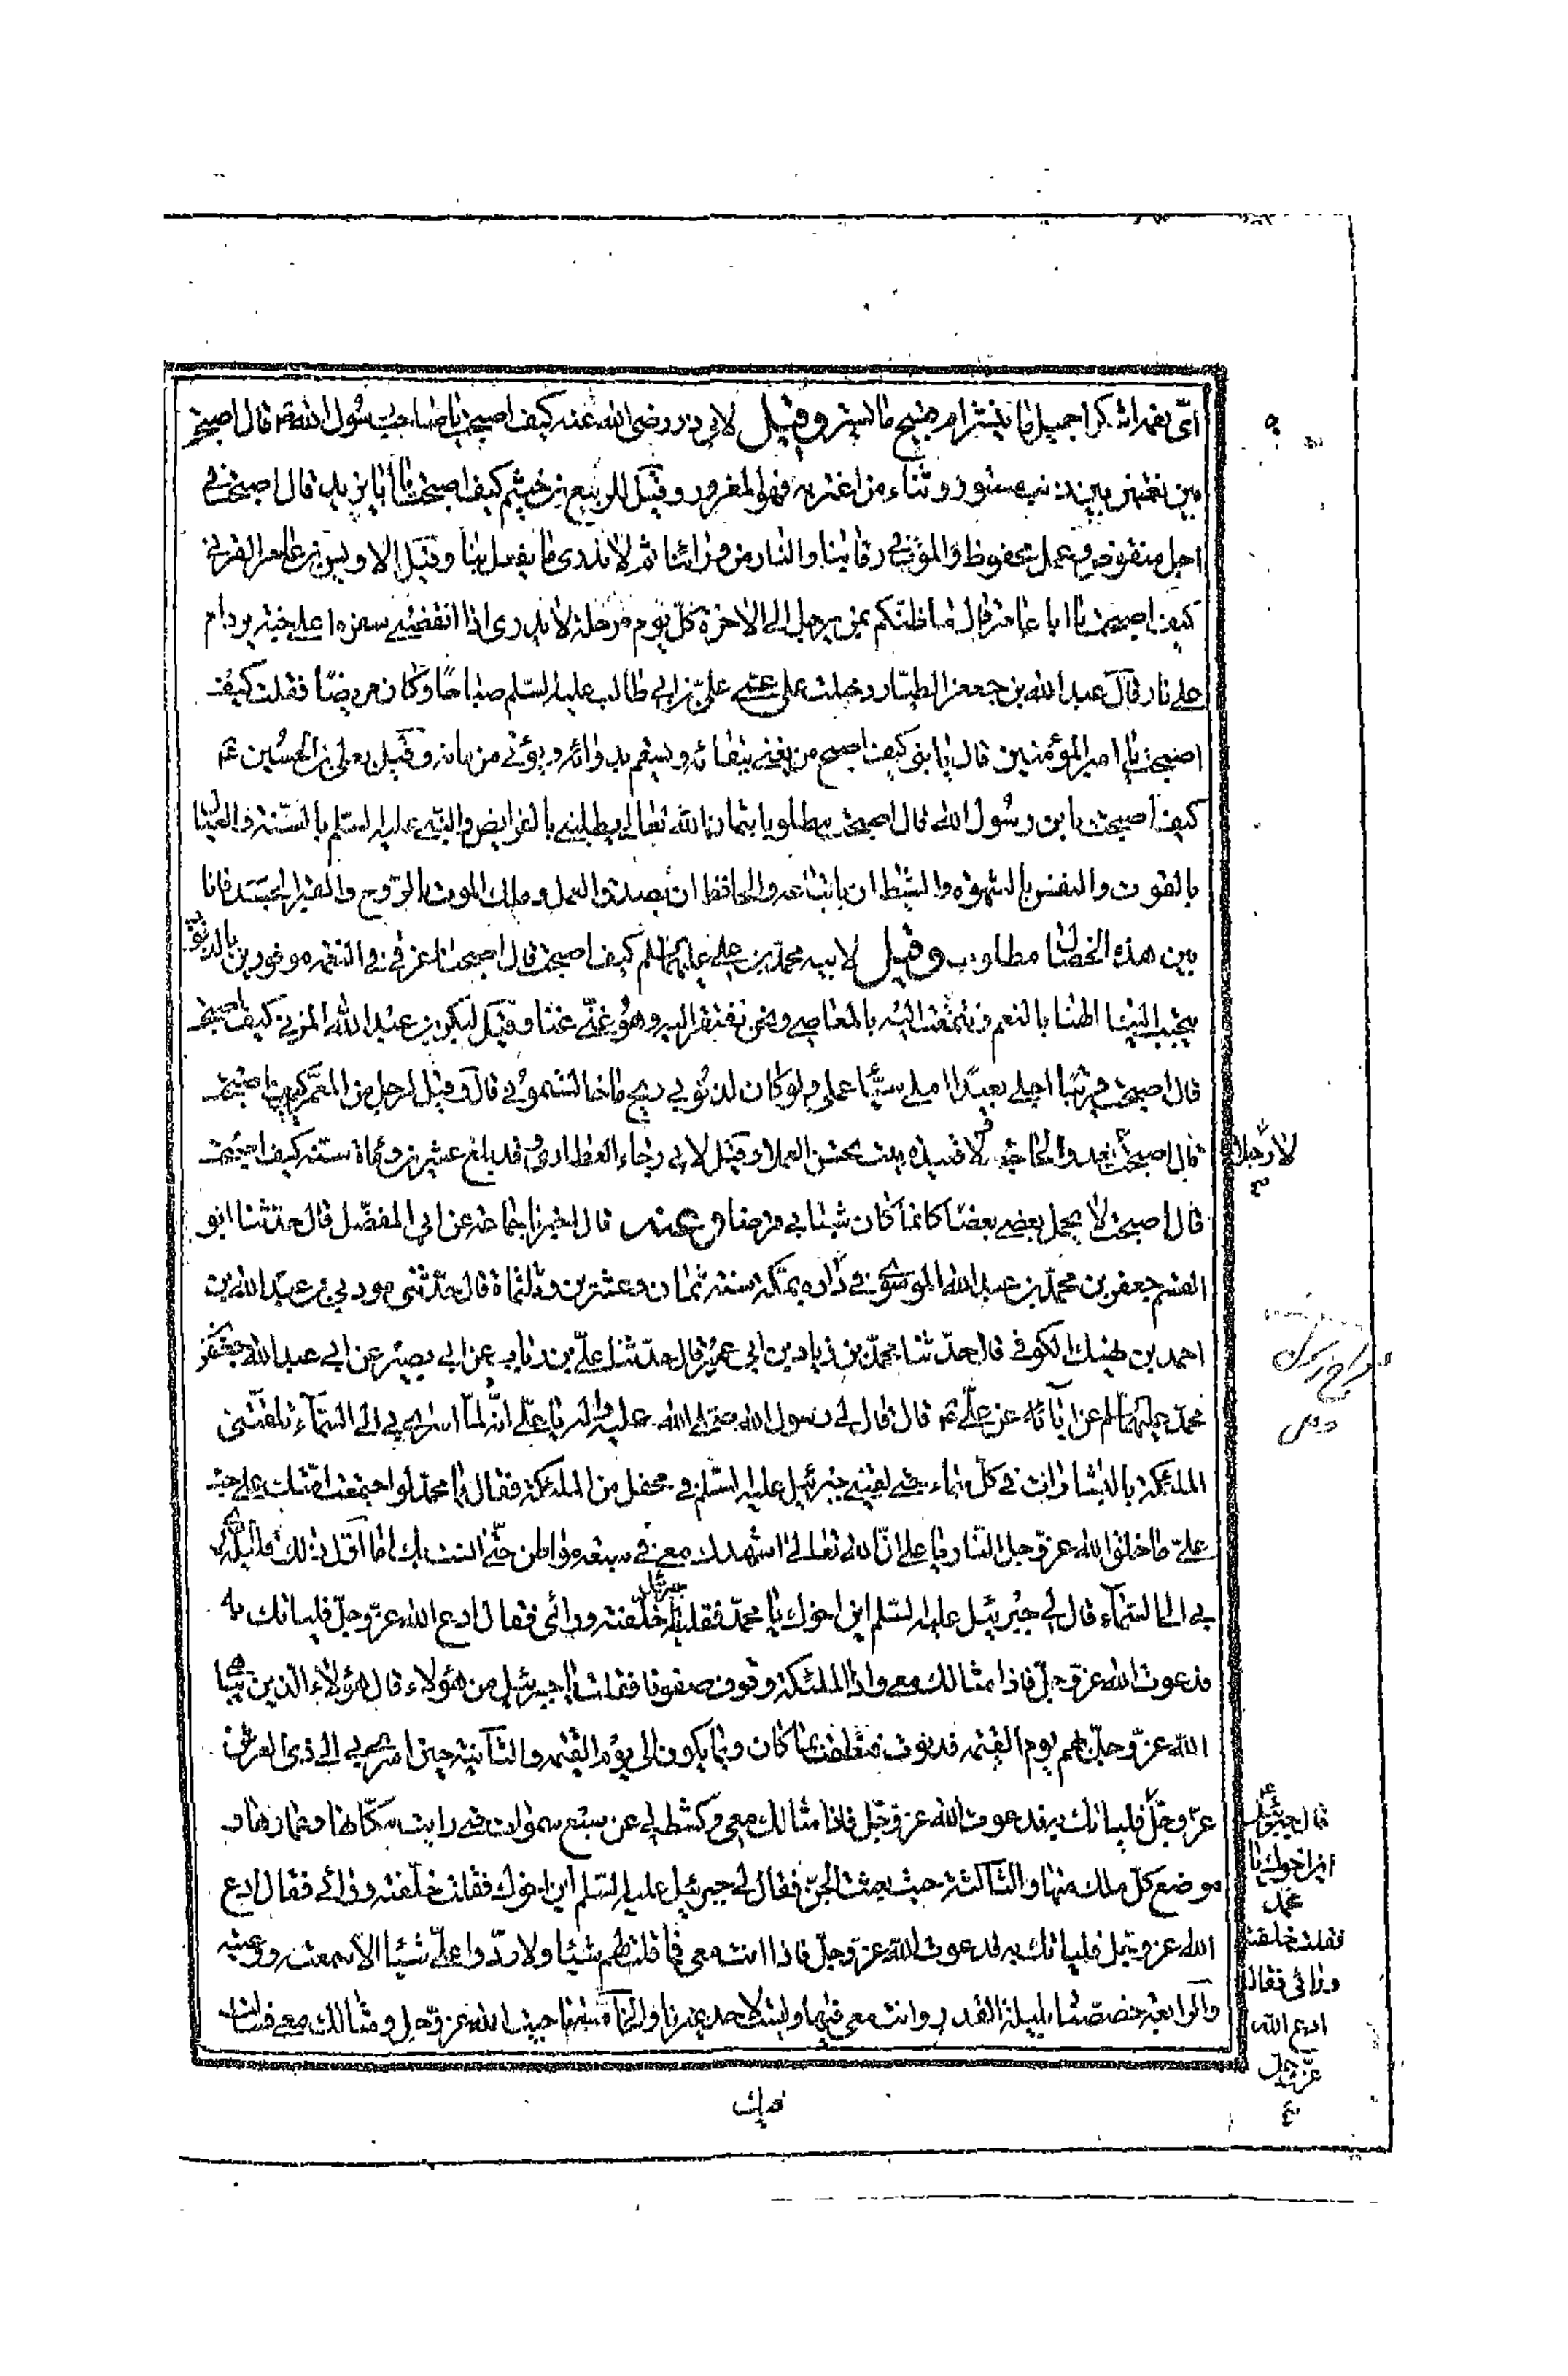 اىّ نعمه اشكر اجميل ما ينشر ام قبيح ما يستر وقيل لابي ذر رضى الله عنه كيف اصبحت يا صاحب رسول الله قال اصبحت
بين نعمتين بين ذنب مستور وثناء من اغتر به فهو المغرور وقيل للربيع بن خيثم كيف اصبحت يا ابا يزيد قال اصبحت في
اجل منقوص وعمل محفوظ والموت في رقابنا والنار من ورائنا ثم لا ندرى ما يفعل بنا وقيل لاويس بن عامر القرني
كيف اصبحت يا ابا عامر قال ما ظنّكم بمن يرحل الى الاخرة كلّ يوم مرحلة لا يدرى اذا انقضى سفره اعلى جنة يرد ام
على نار قال عبد الله بن جعفر الطيّار دخلت على عمّى علىّ بن ابي طالب عليه السّلم صباحًا وكان مريضًا فقلت كيف
اصبحت يا امير المؤمنين قال يا بنى كيف اصبح من يفنى ببقائه ويسقم بدوائه ويؤتى من مامنه وقيل لعلى بن الحسين عم
كيف اصبحت يا بن رسول الله قال اصبحت مطلوبا بثمان الله تعالى يطلبنى بالفرايض والنبى عليه السلم بالسّنة والعيال
بالقوت والنفس بالشهوة والشيطان باتباعه والحافظان بصدق العمل وملك الموت بالرّوح والقبر بالجسد فانا
بين هذه الخصال مطلوب وقيل لابيه محمد بن على عليهما السلم كيف اصبحت قال اصبحنا غرقى في النعمه موفورين بالذنوب
يتحبب الينا الهنا بالنعم ونتمقت اليه بالمعاصى ونحن نفتقر اليه وهو غنىّ عنّا وقيل لبكر بن عبد الله المزنى كيف اصبحت
قال اصبحت قريبا اجلى بعيدًا املى سيئا عملى ولو كان لذنوبي ريح ما جالستمونى قال وقيل لرجل من المعمّرين كيف اصبحت
قال اصبحت
لا رجلا
وقيل لابي رجاء العطاردى وقد بلغ عشرين ومائة سنة كيف اصبحت
قال اصبحت لا يحمل بعضى بعضا كانما كان شبابى قرضا وعنه قال اخبرنا جماعة عن ابي المفضّل قال حدّثنا ابو
القسم جعفر بن محمّد بن عبد الله الموسوى في داره بمكة سنة ثمان وعشرين وثلثمائة قال حدّثنى مودبى عبد الله بن
احمد بن نهيك الكوفي قال حدّثنا محمّد بن زياد بن ابي عمير قال حدّثنا علىّ بن رئاب عن ابي بصير عن ابي عبد الله جعفر بن
محمّد عليهما السلم عن آبائه عن علىّ عم قال قال لى رسول الله صلّى الله عليه واله يا علىّ انّه لما اسرى بى الى السّماء تلقّتنى
الملئكة بالبشارات في كلّ سماء حتى لقينى جبرئيل عليه السّلم في محفل من الملئكة فقال يا محمد لو اجتمعت امّتك على حبّ
علىّ ما خلق الله عزّ وجل النّار يا على انّ الله تعالى اشهدك معى في سبعة مواطن حتّى انست بك اما اوّل ذلك فليلة اسرى
بى الى السّماء قال لى جبرئيل عليه السّلم اين اخوك يا محمّد فقلت يا جبرئيل خلّفته ورائى فقال ادع الله عزّ وجلّ فلياتك به
فدعوت الله عزّ وجلّ فاذا مثالك معى واذا الملئكة وقوف صفوفا فقلت يا جبرئيل من هؤلاء قال هؤلاء الّذين يباهى
الله عزّ وجلّ بهم يوم القيمة فدنوت فنطقت بما كان وبما يكون الى يوم القيمة والثّانية حين اسرى بى الى ذى العرش
عزّ وجلّ فلياتك به فدعوت الله عزّ وجلّ فاذا مثالك معى وكشط لى عن سبع سموات حتى رايت سكّانها وعمارها و
موضع كلّ ملك منها والثّالثة حيث بعثت الى الجنّ فقال لى جبرئيل عليه السّلم اين اخوك فقلت خلّفته ورائى فقال ادع
الله عزّ وجل فلياتك به فدعوت الله عزّ وجلّ فاذا انت معى فما قلت لهم شيئا ولا ردّوا علىّ شيئا الا سمعته ووعيته
والرابعة خصصنا بليلة القدر وانت معى فيها وليست لاحد غيرنا والخامسة ناجيت الله عزّ وجل ومثالك معى فسالت
قال جبرئيل
اين اخوك يا
محمد
فقلت خلفته
ورائى فقال
ادع الله
عزّ وجل
فيك